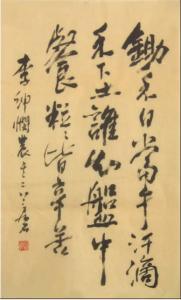 鋤禾日當午汗滴
禾下土誰知盤中
餐粒〻皆辛苦
李紳憫農